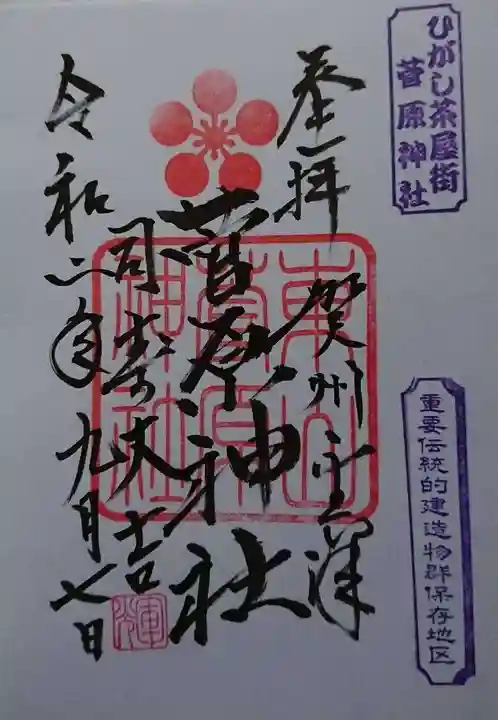 ひがし茶屋街
菅原神社
重要伝統的建造物群保存地区
奉拝
賀州金澤
東山
菅原
神社
菅原神社
大吉
令和二年九月七日